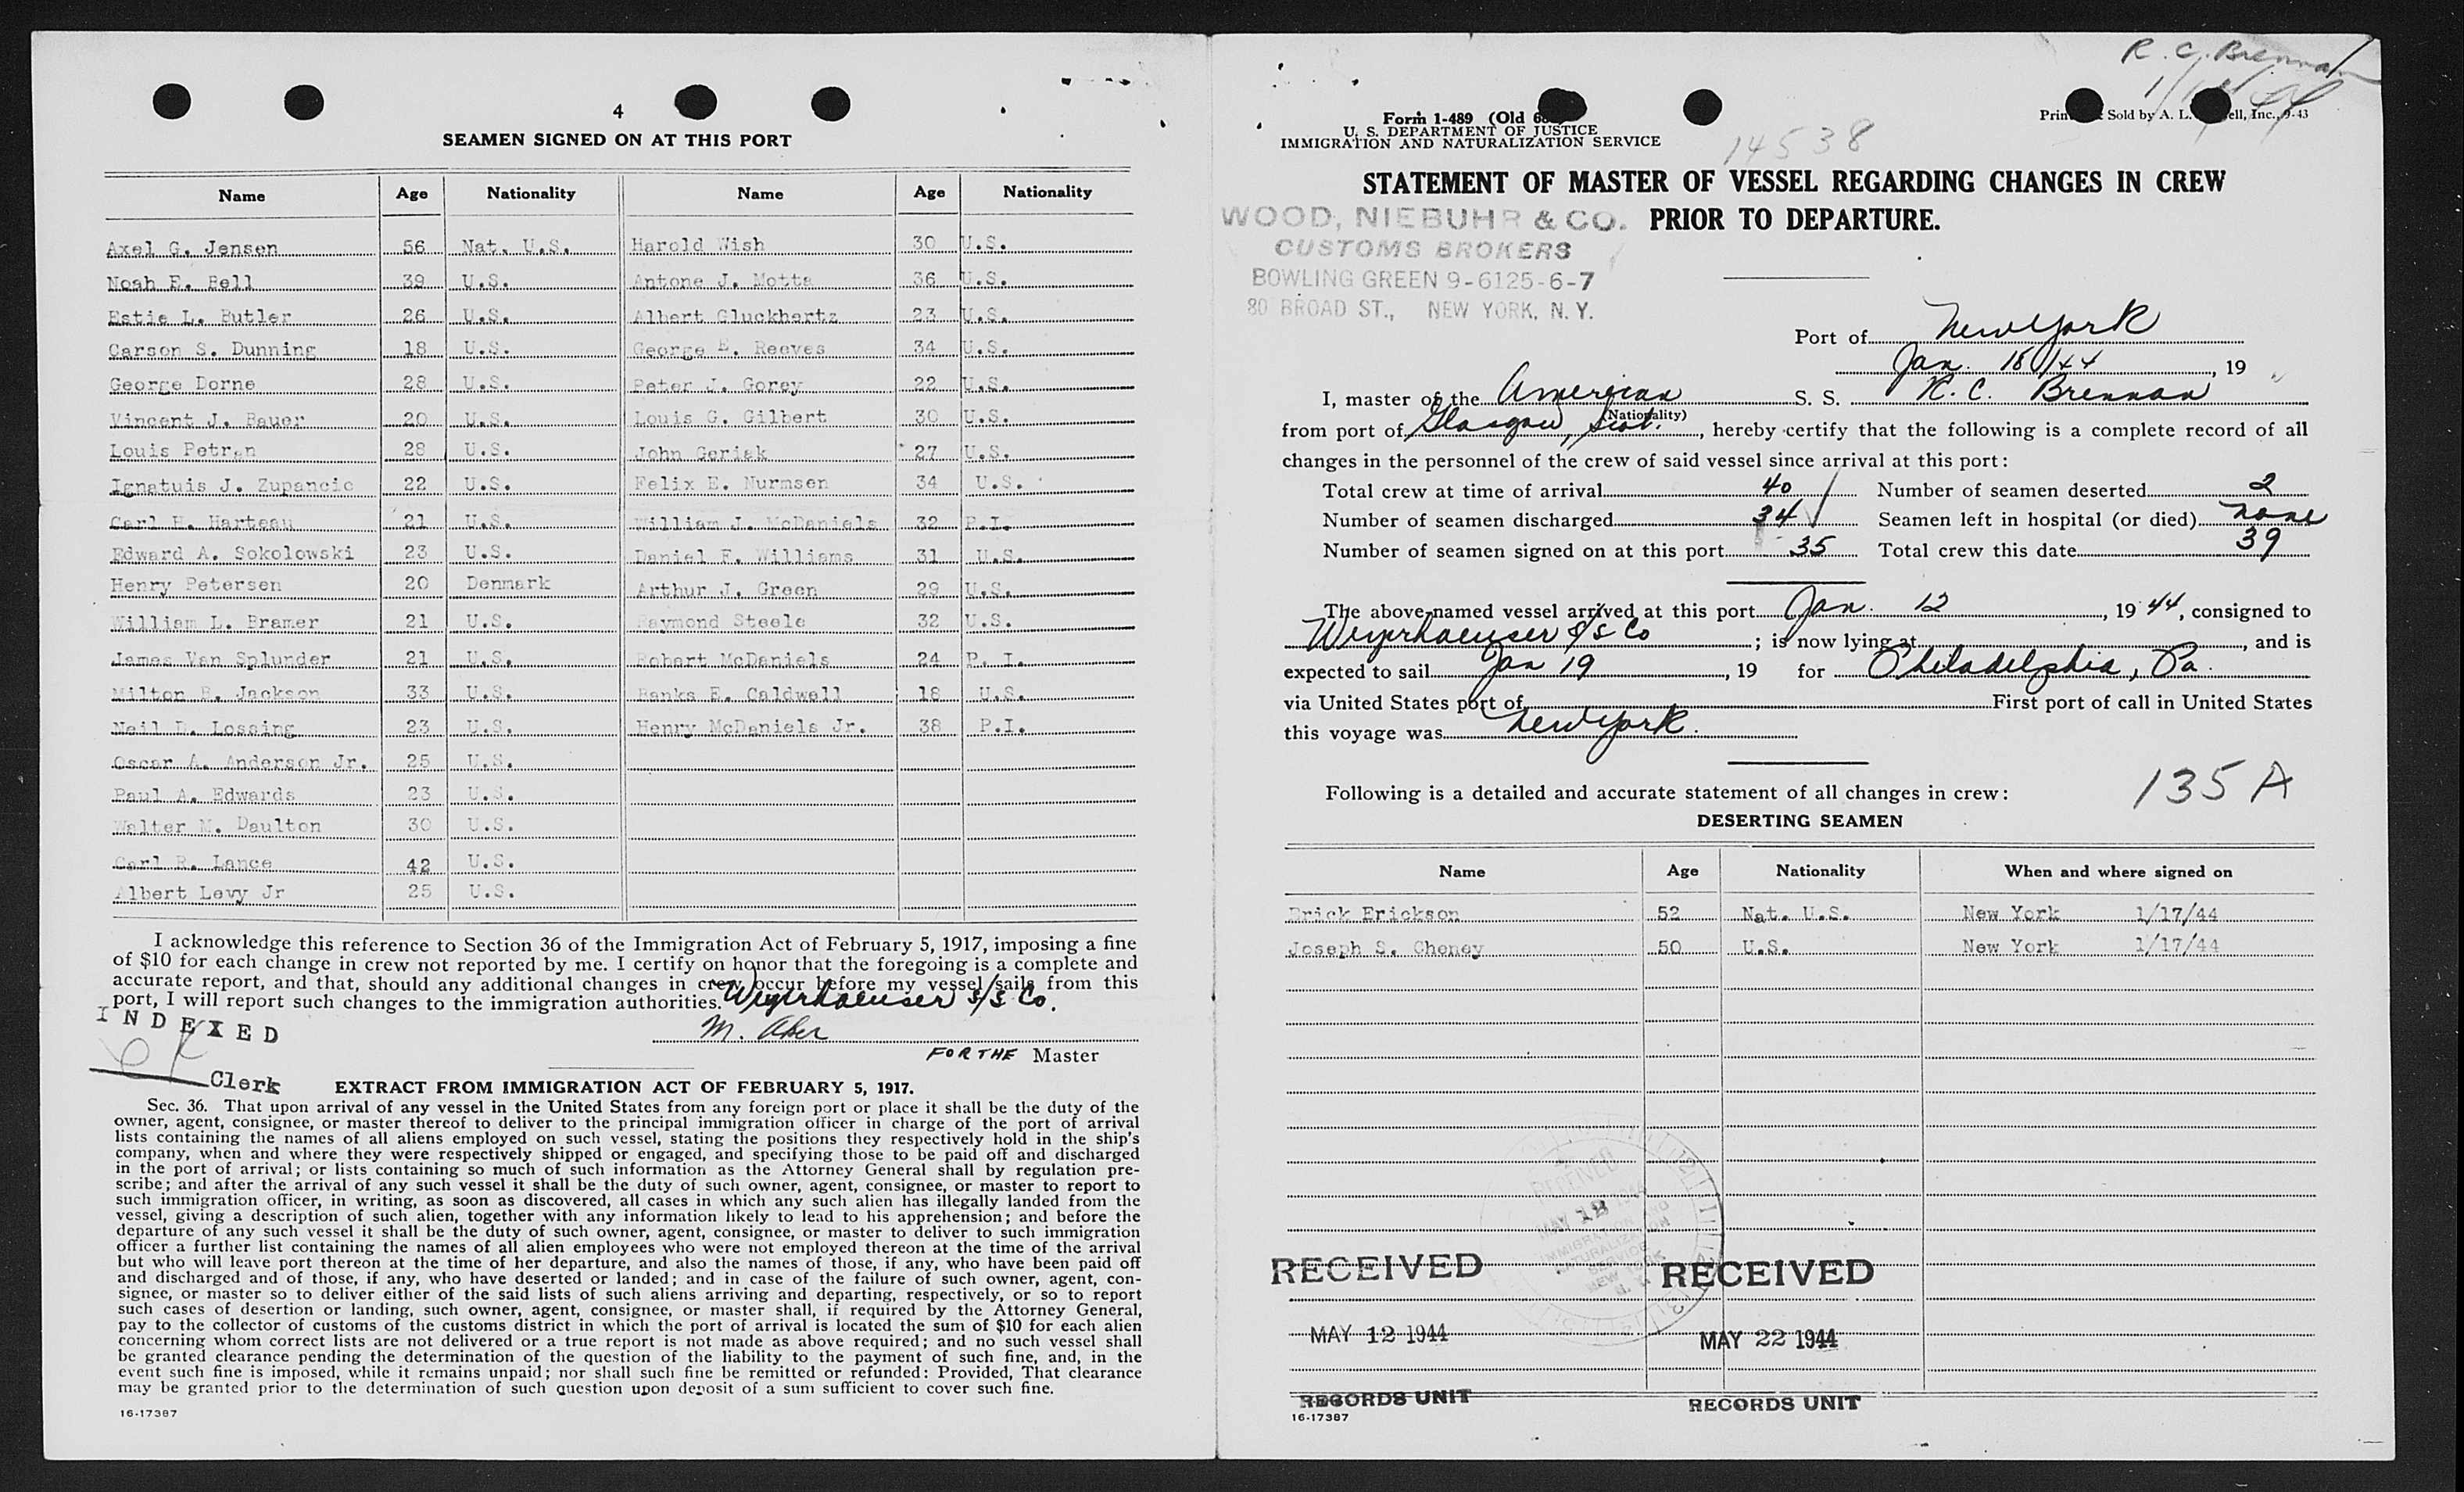 4
SEAMEN SIGNED ON AT THIS PORT
Name Age Nationality Name Age Nationality
Axel G. Jensen 56 Nat. U.S. Harold Wish 30 U.S.
Noah E. Bell 39 U.S. Antone J. Motta 36 U.S.
Estie L. Butler 26 U.S. Albert Gluckhertz 23 U.S.
Carson S. Dunning 18 U.S. George E. Reeves 34 U.S.
George Dorne 28 U.S. Peter J. Gorey 22 U.S.
Vincent J. Bauer 20 U.S. Louis G. Gilbert 30 U.S.
Louis Petran 28 U.S. John Geriak 27 U.S.
Ignatuis J. Zupancic 22 U.S. Felix E. Nurmsen 34 U.S.
Carl H. Harteau 21 U.S. William J. McDaniels 32 P.I.
Edward A. Sokolowski 23 U.S. Daniel F. Williams 31 U.S.
Henry Petersen 20 Denmark Arthur J. Green 29 U.S.
William L. Bramer 21 U.S. Raymond Steele 32 U.S.
James Van Splunder 21 U.S. Robert McDaniels 24 P. I.
Milton B. Jackson 33 U.S. Banks E. Caldwell 18 U.S.
Neil D. Lossing 23 U.S. Henry McDaniels Jr. 38 P.I.
Oscar A. Anderson Jr. 25 U.S.
Paul A. Edwards 23 U.S.
Walter M. Daulton 30 U.S.
Carl R. Lance 42 U.S.
Albert Levy Jr 25 U.S.
I acknowledge this reference to Section 36 of the Immigration Act of February 5, 1917, imposing a fine
of $10 for each change in crew not reported by me. I certify on honor that the foregoing is a complete and
accurate report, and that, should any additional changes in crew occur before my vessel sails from this
port, I will report such changes to the immigration authorities. Weyerhaeuser S/S Co.
INDEXED
M. Aber
FOR THE Master
Clerk
EXTRACT FROM IMMIGRATION ACT OF FEBRUARY 5, 1917.
Sec. 36. That upon arrival of any vessel in the United States from any foreign port or place it shall be the duty of the
owner, agent, consignee, or master thereof to deliver to the principal immigration officer in charge of the port of arrival
lists containing the names of all aliens employed on such vessel, stating the positions they respectively hold in the ship's
company, when and where they were respectively shipped or engaged, and specifying those to be paid off and discharged
in the port of arrival; or lists containing so much of such information as the Attorney General shall by regulation pre-
scribe; and after the arrival of any such vessel it shall be the duty of such owner, agent, consignee, or master to report to
such immigration officer, in writing, as soon as discovered, all cases in which any such alien has illegally landed from the
vessel, giving a description of such alien, together with any information likely to lead to his apprehension; and before the
departure of any such vessel it shall be the duty of such owner, agent, consignee, or master to deliver to such immigration
officer a further list containing the names of all alien employees who were not employed thereon at the time of the arrival
but who will leave port thereon at the time of her departure, and also the names of those, if any, who have been paid off
and discharged and of those, if any, who have deserted or landed; and in case of the failure of such owner, agent, con-
signee, or master so to deliver either of the said lists of such aliens arriving and departing, respectively, or so to report
such cases of desertion or landing, such owner, agent, consignee, or master shall, if required by the Attorney General,
pay to the collector of customs of the customs district in which the port of arrival is located the sum of $10 for each alien
concerning whom correct lists are not delivered or a true report is not made as above required; and no such vessel shall
be granted clearance pending the determination of the question of the liability to the payment of such fine, and, in the
event such fine is imposed, while it remains unpaid; nor shall such fine be remitted or refunded: Provided, That clearance
may be granted prior to the determination of such question upon deposit of a sum sufficient to cover such fine.
16-17387
R. C. Brennan
Form 1-489 (Old
U. S. DEPARTMENT OF JUSTICE
IMMIGRATION AND NATURALIZATION SERVICE
Sold by A. L. Inc., 9-43
14538
STATEMENT OF MASTER OF VESSEL REGARDING CHANGES IN CREW
PRIOR TO DEPARTURE.
WOOD, NIEBUHR & CO.
CUSTOMS BROKERS
BOWLING GREEN 9-6125-6-7
80 BROAD ST., NEW YORK, N. Y.
Port of New York
Jan. 18/44, 19
I, master of the American S. S. R. C. Brennan
(Nationality)
from port of Glasgow, Scot., hereby certify that the following is a complete record of all
changes in the personnel of the crew of said vessel since arrival at this port:
Total crew at time of arrival 40 Number of seamen deserted 2
Number of seamen discharged 34 Seamen left in hospital (or died) none
Number of seamen signed on at this port 35 Total crew this date 39
The above-named vessel arrived at this port Jan. 12, 1944, consigned to
Weyerhaeuser S/S Co; is now lying at, and is
expected to sail Jan 19, 19 for Philadelphia, Pa.
via United States port of First port of call in United States
this voyage was New York.
Following is a detailed and accurate statement of all changes in crew:
135 A
DESERTING SEAMEN
Name Age Nationality When and where signed on
Erick Erickson 52 Nat. U.S. New York 1/17/44
Joseph S. Cheney 50 U.S. New York 1/17/44
RECEIVED
MAY 18 1944
IMMIGRATION AND
NATURALIZATION
SERVICE
NEW YORK
RECEIVED RECEIVED
MAY 12 1944 MAY 22 1944
RECORDS UNIT RECORDS UNIT
16-17387